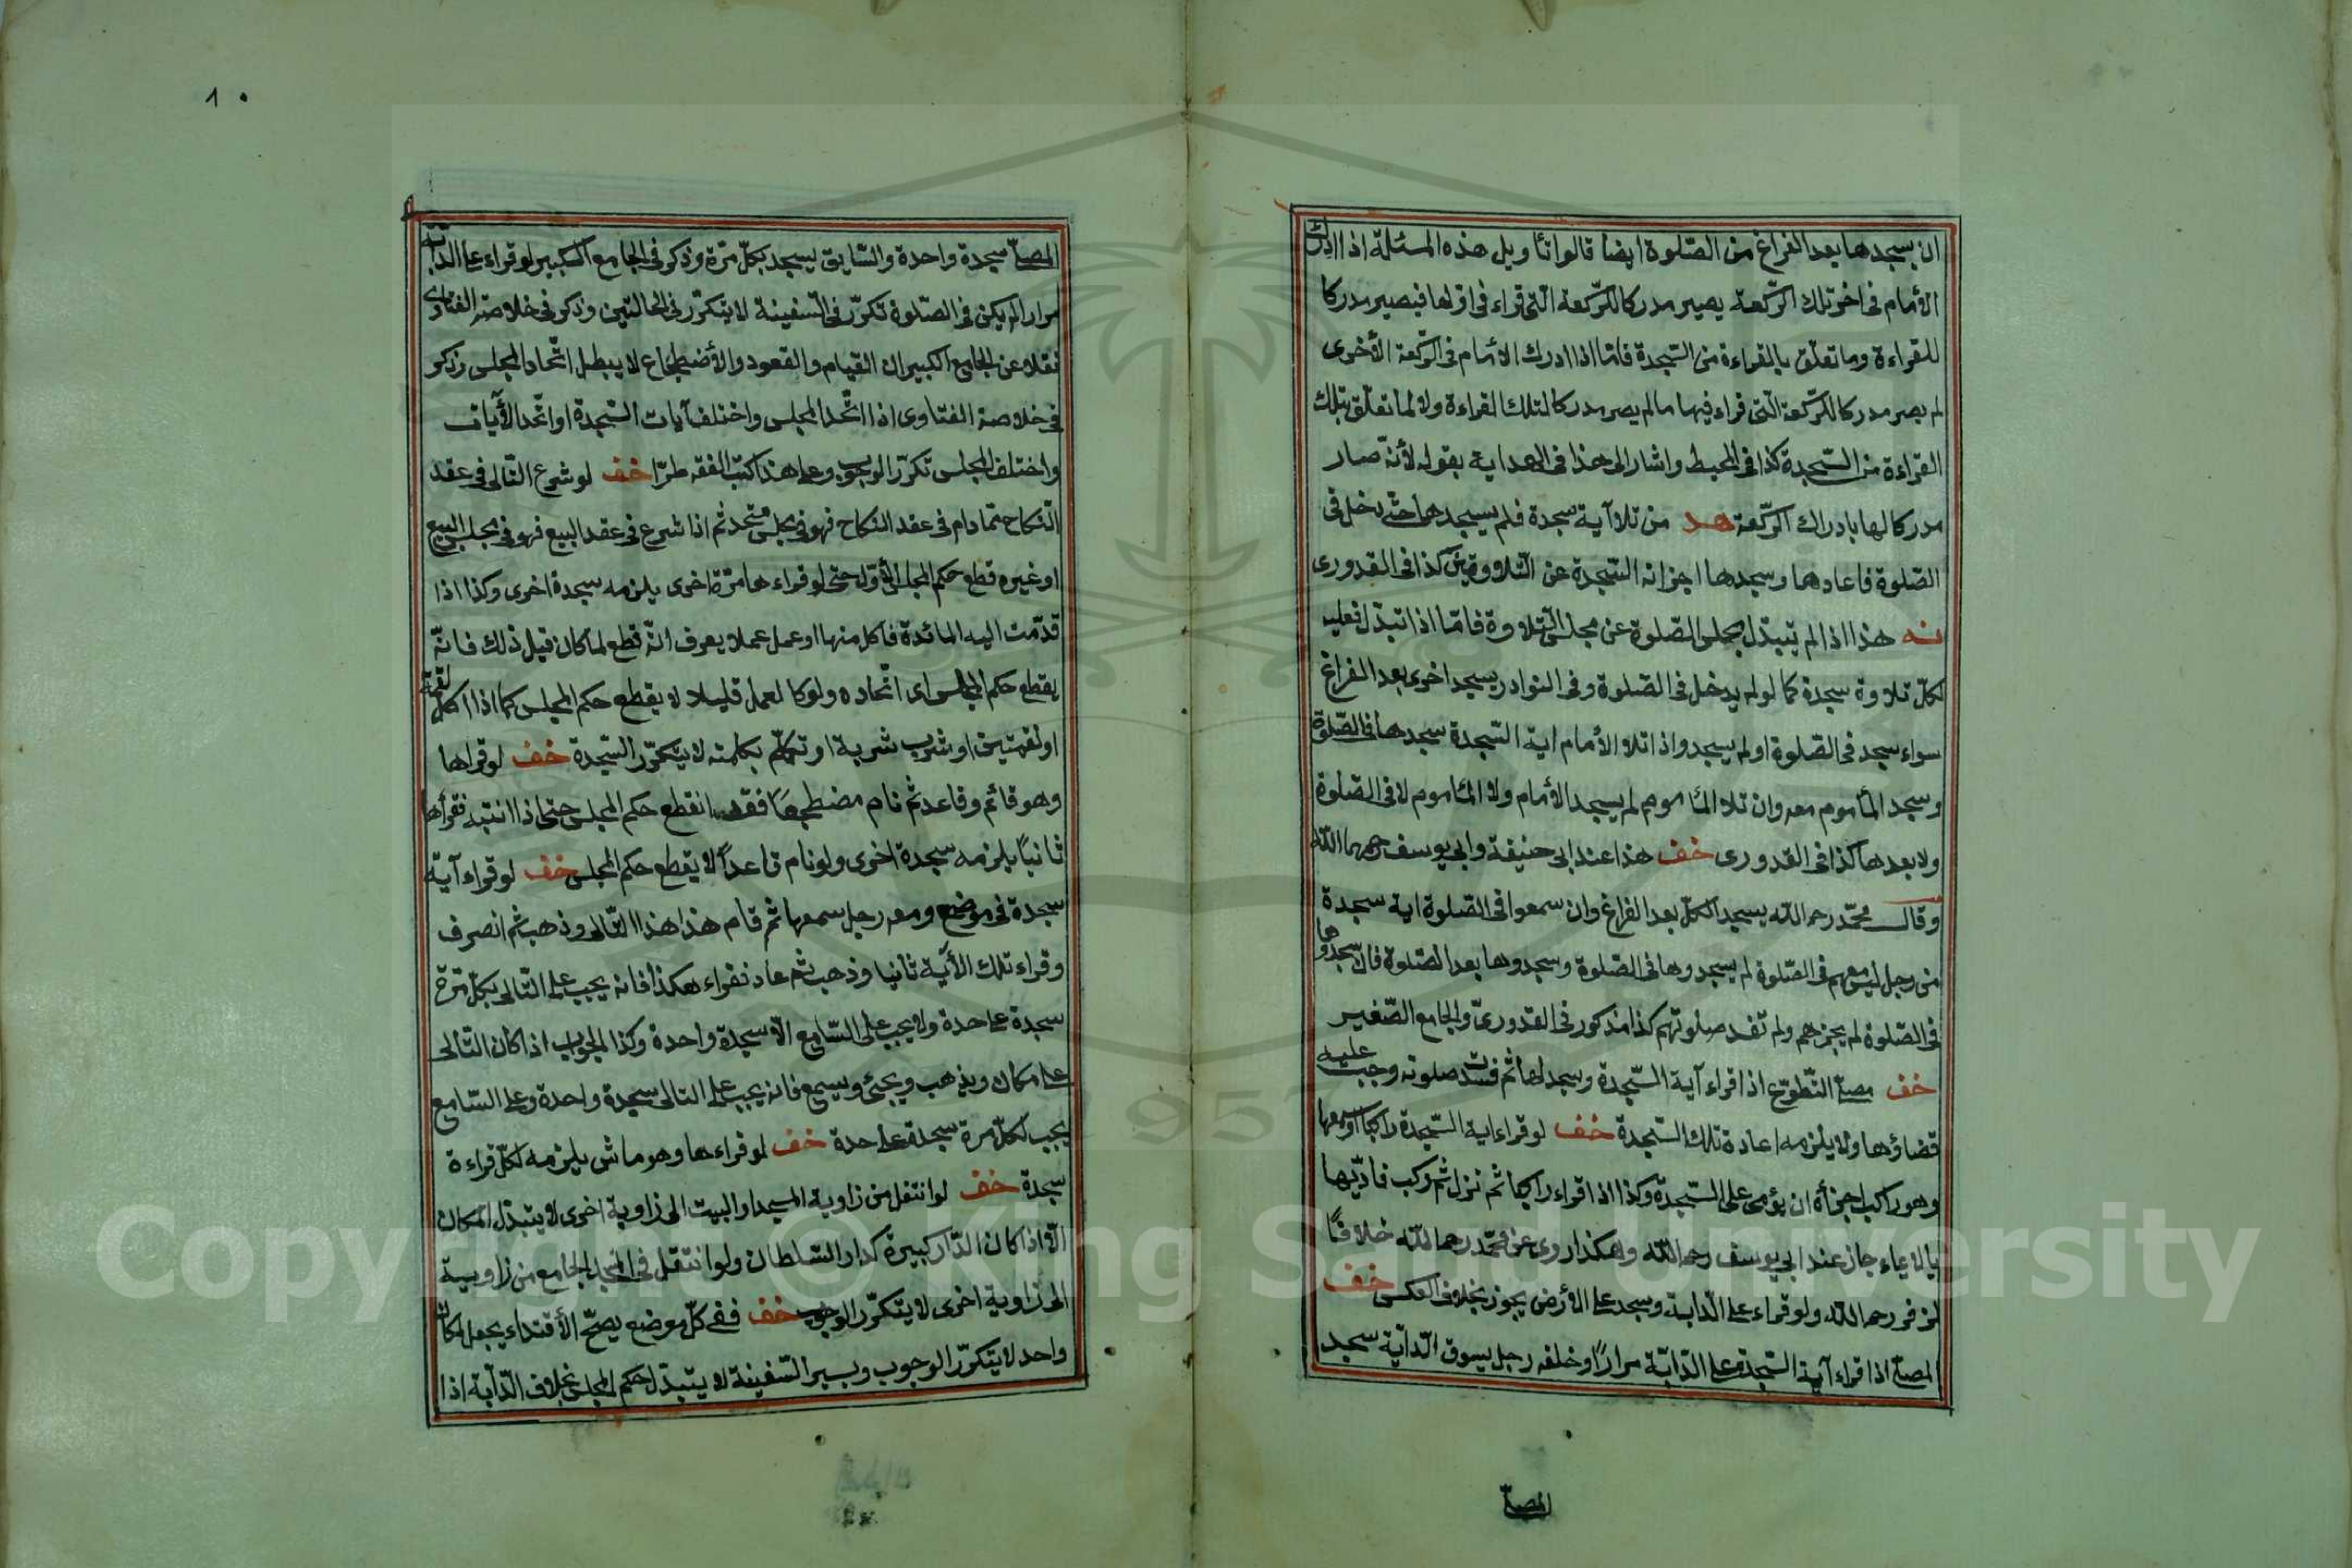 ان يسجدها بعد الفراغ من الصّلوة ايضا قالوا تأويل هذه المسئلة اذا ادرك
الأمام فى اخر تلك الرّكعة يصير مدركا للرّكعة الّتى قراء فى اوّلها فيصير مدركا
للقراءة وما تعلّق بالقراءة من السّجدة فامّا اذا ادرك الأمام فى الرّكعة الأخرى
لم يصر مدركا للرّكعة الّتى قراء فيها ما لم يصر مدركا لتلك القراءة ولا لما تعلّق بتلك
القراءة من السّجدة كذا فى المحيط واشار الى هذا فى الهداية بقوله لأنّه صار
مدركا لها بادراك الرّكعة هد من تلا آية سجدة فلم يسجدها حتّى دخل فى
الصّلوة فاعادها وسجدها اجزاته السّجدة عن التّلاوتين كذا فى القدورى
نه هذا اذا لم يتبدّل مجلس الصّلوة عن مجلس التّلاوة فامّا اذا تبدّل فعليه
لكلّ تلاوة سجدة كما لو لم يدخل فى الصّلوة وفى النوادر يسجد اخرى بعد الفراغ
سواء سجد فى الصّلوة او لم يسجد واذا تلا الأمام اية السّجدة سجدها فى الصّلوة
وسجد المأموم معه وان تلا المأموم لم يسجد الأمام ولا المأموم لا فى الصّلوة
ولا بعدها كذا فى القدورى خف هذا عند ابى حنيفة وابى يوسف رحمهما اللّه
وقال محمّد رحمه اللّه يسجد الكلّ بعد الفراغ وان سمعوا فى الصّلوة اية سجدة
من رجل ليس معهم فى الصّلوة لم يسجدوها فى الصّلوة وسجدوها بعد الصّلوة فان سجدوها
فى الصّلوة لم يجزهم ولم تفسد صلوتهم كذا مذكور فى القدورىّ والجامع الصّغير
خف مصلّ التّطوّع اذا قراء آية السّجدة وسجد لها ثم فسدت صلوته وجب عليه
قضاؤها ولا يلزمه اعادة تلك السّجدة خف لو قراء اية السّجدة راكبا او سمعها
وهو راكب اجزأه ان يؤمى على السّجدة وكذا اذا قراء راكبا ثم نزل ثم ركب فادّيها
بالايماء جاز عند ابى يوسف رحمه اللّه وهكذا روى عن محمّد رحمه اللّه خلافًا
لزفر رحمه اللّه ولو قراء على الدّابة وسجد على الأرض يجوز بخلاف العكس خف
المصلّ اذا قراء آية السّجدة على الدّابّة مرارًا وخلفه رجل يسوق الدّابّة سجد
المصلّ
١٠
المصلّ سجدة واحدة والسّايق يسجد بكلّ مرّة وذكر فى الجامع الكبير لو قراء على الدّابّة
مرارا لم يكن فى الصّلوة تكرّر فى السّفينة لا يتكرّر فى الحالتين وذكر فى خلاصة الفتاوى
نقلا عن الجامع الكبير ان القيام والقعود والأضطجاع لا يبطل اتّحاد المجلس وذكر
فى خلاصة الفتاوى اذا اتّحد المجلس واختلف آيات السّجدة او اتّحد الأيات
واختلف المجلس تكرّر الوجوب وعلى هذا كتب الفقه طرّا خف لو شرع التّالى فى عقد
النّكاح فما دام فى عقد النكاح فهو فى مجلس متّحد ثم اذا شرع فى عقد البيع فهو فى مجلس البيع
او غيره قطع حكم المجلس الأوّل حتى لو قراءها مرّة اخرى يلزمه سجدة اخرى وكذا اذا
قدّمت اليه المائدة فاكل منها او عمل عملا يعرف انّه قطع لما كان قبل ذلك فانّه
يقطع حكم المجلس اى اتّحاده ولو كا لعمل قليلا لا يقطع حكم المجلس كما اذا اكل لقمة
او لقمتين او شرب شربة او تكلّم بكلمة لا يتكرّر السّجدة خف لو قراها
وهو قائم وقاعد ثم نام مضطجعًا فقد انقطع حكم المجلس حتى اذا انتبه فقرأها
ثانيًا يلزمه سجدة اخرى ولو نام قاعدًا لا يقطع حكم المجلس خف لو قراء آية
سجدة فى موضع ومعه رجل سمعها ثم قام هذا هذا التّالى وذهب ثم انصرف
وقراء تلك الأية ثانيا وذهب ثم عاد فقراء هكذا فانه يجب على التّالى بكلّ مرّة
سجدة على حدة ولا يجب على السّامع الّا سجدة واحدة وكذا الجواب اذا كان التّالى
على مكان ويذهب ويجئ ويسمع فانه يجب على التالى سجدة واحدة وعلى السّامع
يجب لكلّ مرة سجدة على حدة خف لو قراءها وهو ماش يلزمه لكلّ قراءة
سجدة خف لو انتقل من زاوية المسجد او البيت الى زاوية اخرى لا يتبدّل المكان
الّا اذا كان الدّار كبيرة كدار السّلطان ولو انتقل فى المسجد الجامع من زاوية
الى زاوية اخرى لا يتكرّر الوجوب خف ففى كلّ موضع يصحّ الأقتداء يجعل مكان
واحد لا يتكرّر الوجوب وسير السّفينة لا يتبدّل حكم المجلس بخلاف الدّابة اذا
Copyright © King Saud University